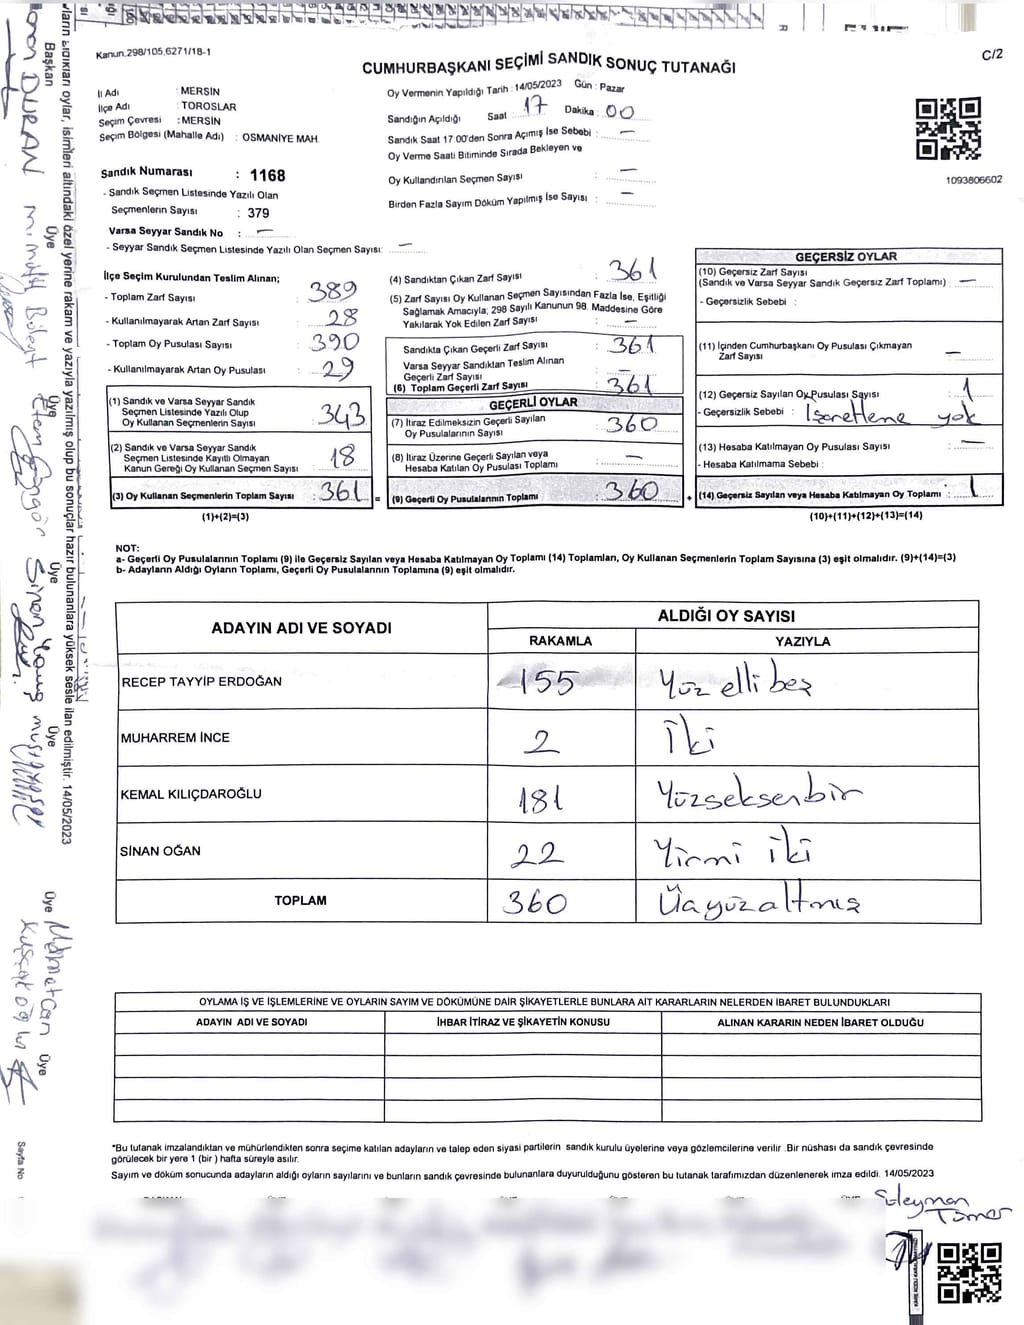 Kanun.298/105,6271/18-1
C/2
CUMHURBAŞKANI SEÇİMİ SANDIK SONUÇ TUTANAĞI
İl Adı : MERSİN
İlçe Adı : TOROSLAR
Seçim Çevresi : MERSİN
Seçim Bölgesi (Mahalle Adı) : OSMANİYE MAH.
Oy Vermenin Yapıldığı Tarih : 14/05/2023 Gün : Pazar
Sandığın Açıldığı Saat 17 Dakika : 00
Sandık Saat 17.00'den Sonra Açımış İse Sebebi : —
Oy Verme Saati Bitiminde Sırada Bekleyen ve
Oy Kullandırılan Seçmen Sayısı : —
Birden Fazla Sayım Döküm Yapılmış İse Sayısı : —
1093806602
Sandık Numarası : 1168
- Sandık Seçmen Listesinde Yazılı Olan
Seçmenlerin Sayısı : 379
Varsa Seyyar Sandık No : —
- Seyyar Sandık Seçmen Listesinde Yazılı Olan Seçmen Sayısı: —
İlçe Seçim Kurulundan Teslim Alınan;
- Toplam Zarf Sayısı : 389
- Kullanılmayarak Artan Zarf Sayısı : 28
- Toplam Oy Pusulası Sayısı : 390
- Kullanılmayarak Artan Oy Pusulası : 29
(1) Sandık ve Varsa Seyyar Sandık
Seçmen Listesinde Yazılı Olup
Oy Kullanan Seçmenlerin Sayısı : 343
(2) Sandık ve Varsa Seyyar Sandık
Seçmen Listesinde Kayıtlı Olmayan
Kanun Gereği Oy Kullanan Seçmen Sayısı : 18
(3) Oy Kullanan Seçmenlerin Toplam Sayısı : 361 =
(1)+(2)=(3)
(4) Sandıktan Çıkan Zarf Sayısı : 361
(5) Zarf Sayısı Oy Kullanan Seçmen Sayısından Fazla İse, Eşitliği
Sağlamak Amacıyla; 298 Sayılı Kanunun 98. Maddesine Göre
Yakılarak Yok Edilen Zarf Sayısı : —
Sandıkta Çıkan Geçerli Zarf Sayısı : 361
Varsa Seyyar Sandıktan Teslim Alınan
Geçerli Zarf Sayısı : —
(6) Toplam Geçerli Zarf Sayısı : 361
GEÇERLİ OYLAR
(7) İtiraz Edilmeksizin Geçerli Sayılan
Oy Pusulalarının Sayısı : 360
(8) İtiraz Üzerine Geçerli Sayılan veya
Hesaba Katılan Oy Pusulası Toplamı : —
(9) Geçerli Oy Pusulalarının Toplamı : 360 +
GEÇERSİZ OYLAR
(10) Geçersiz Zarf Sayısı
(Sandık ve Varsa Seyyar Sandık Geçersiz Zarf Toplamı) : —
- Geçersizlik Sebebi :
(11) İçinden Cumhurbaşkanı Oy Pusulası Çıkmayan
Zarf Sayısı : —
(12) Geçersiz Sayılan Oy Pusulası Sayısı : 1
- Geçersizlik Sebebi : İşaretleme yok
(13) Hesaba Katılmayan Oy Pusulası Sayısı : —
- Hesaba Katılmama Sebebi :
(14) Geçersiz Sayılan veya Hesaba Katılmayan Oy Toplamı : 1
(10)+(11)+(12)+(13)=(14)
NOT:
a- Geçerli Oy Pusulalarının Toplamı (9) ile Geçersiz Sayılan veya Hesaba Katılmayan Oy Toplamı (14) Toplamları, Oy Kullanan Seçmenlerin Toplam Sayısına (3) eşit olmalıdır. (9)+(14)=(3)
b- Adayların Aldığı Oyların Toplamı, Geçerli Oy Pusulalarının Toplamına (9) eşit olmalıdır.
ADAYIN ADI VE SOYADI
ALDIĞI OY SAYISI
RAKAMLA YAZIYLA
RECEP TAYYİP ERDOĞAN 155 Yüz elli beş
MUHARREM İNCE 2 İki
KEMAL KILIÇDAROĞLU 181 Yüzseksenbir
SİNAN OĞAN 22 Yirmi iki
TOPLAM 360 Üçyüzaltmış
OYLAMA İŞ VE İŞLEMLERİNE VE OYLARIN SAYIM VE DÖKÜMÜNE DAİR ŞİKAYETLERLE BUNLARA AİT KARARLARIN NELERDEN İBARET BULUNDUKLARI
ADAYIN ADI VE SOYADI İHBAR İTİRAZ VE ŞİKAYETİN KONUSU ALINAN KARARIN NEDEN İBARET OLDUĞU
*Bu tutanak imzalandıktan ve mühürlendikten sonra seçime katılan adayların ve talep eden siyasi partilerin sandık kurulu üyelerine veya gözlemcilerine verilir. Bir nüshası da sandık çevresinde
görülecek bir yere 1 (bir) hafta süreyle asılır.
Sayım ve döküm sonucunda adayların aldığı oyların sayılarını ve bunların sandık çevresinde bulunanlara duyurulduğunu gösteren bu tutanak tarafımızdan düzenlenerek imza edildi. 14/05/2023
Süleyman
Tümer
ların aldıkları oylar, isimleri altındaki özel yerine rakam ve yazıyla yazılmış olup bu sonuçlar hazır bulunanlara yüksek sesle ilan edilmiştir. 14/05/2023
Başkan Üye Üye Üye Üye Üye Üye
DURAN
Bülent
Etem Güngör
Sinan
Mehmetcan
Sayfa No